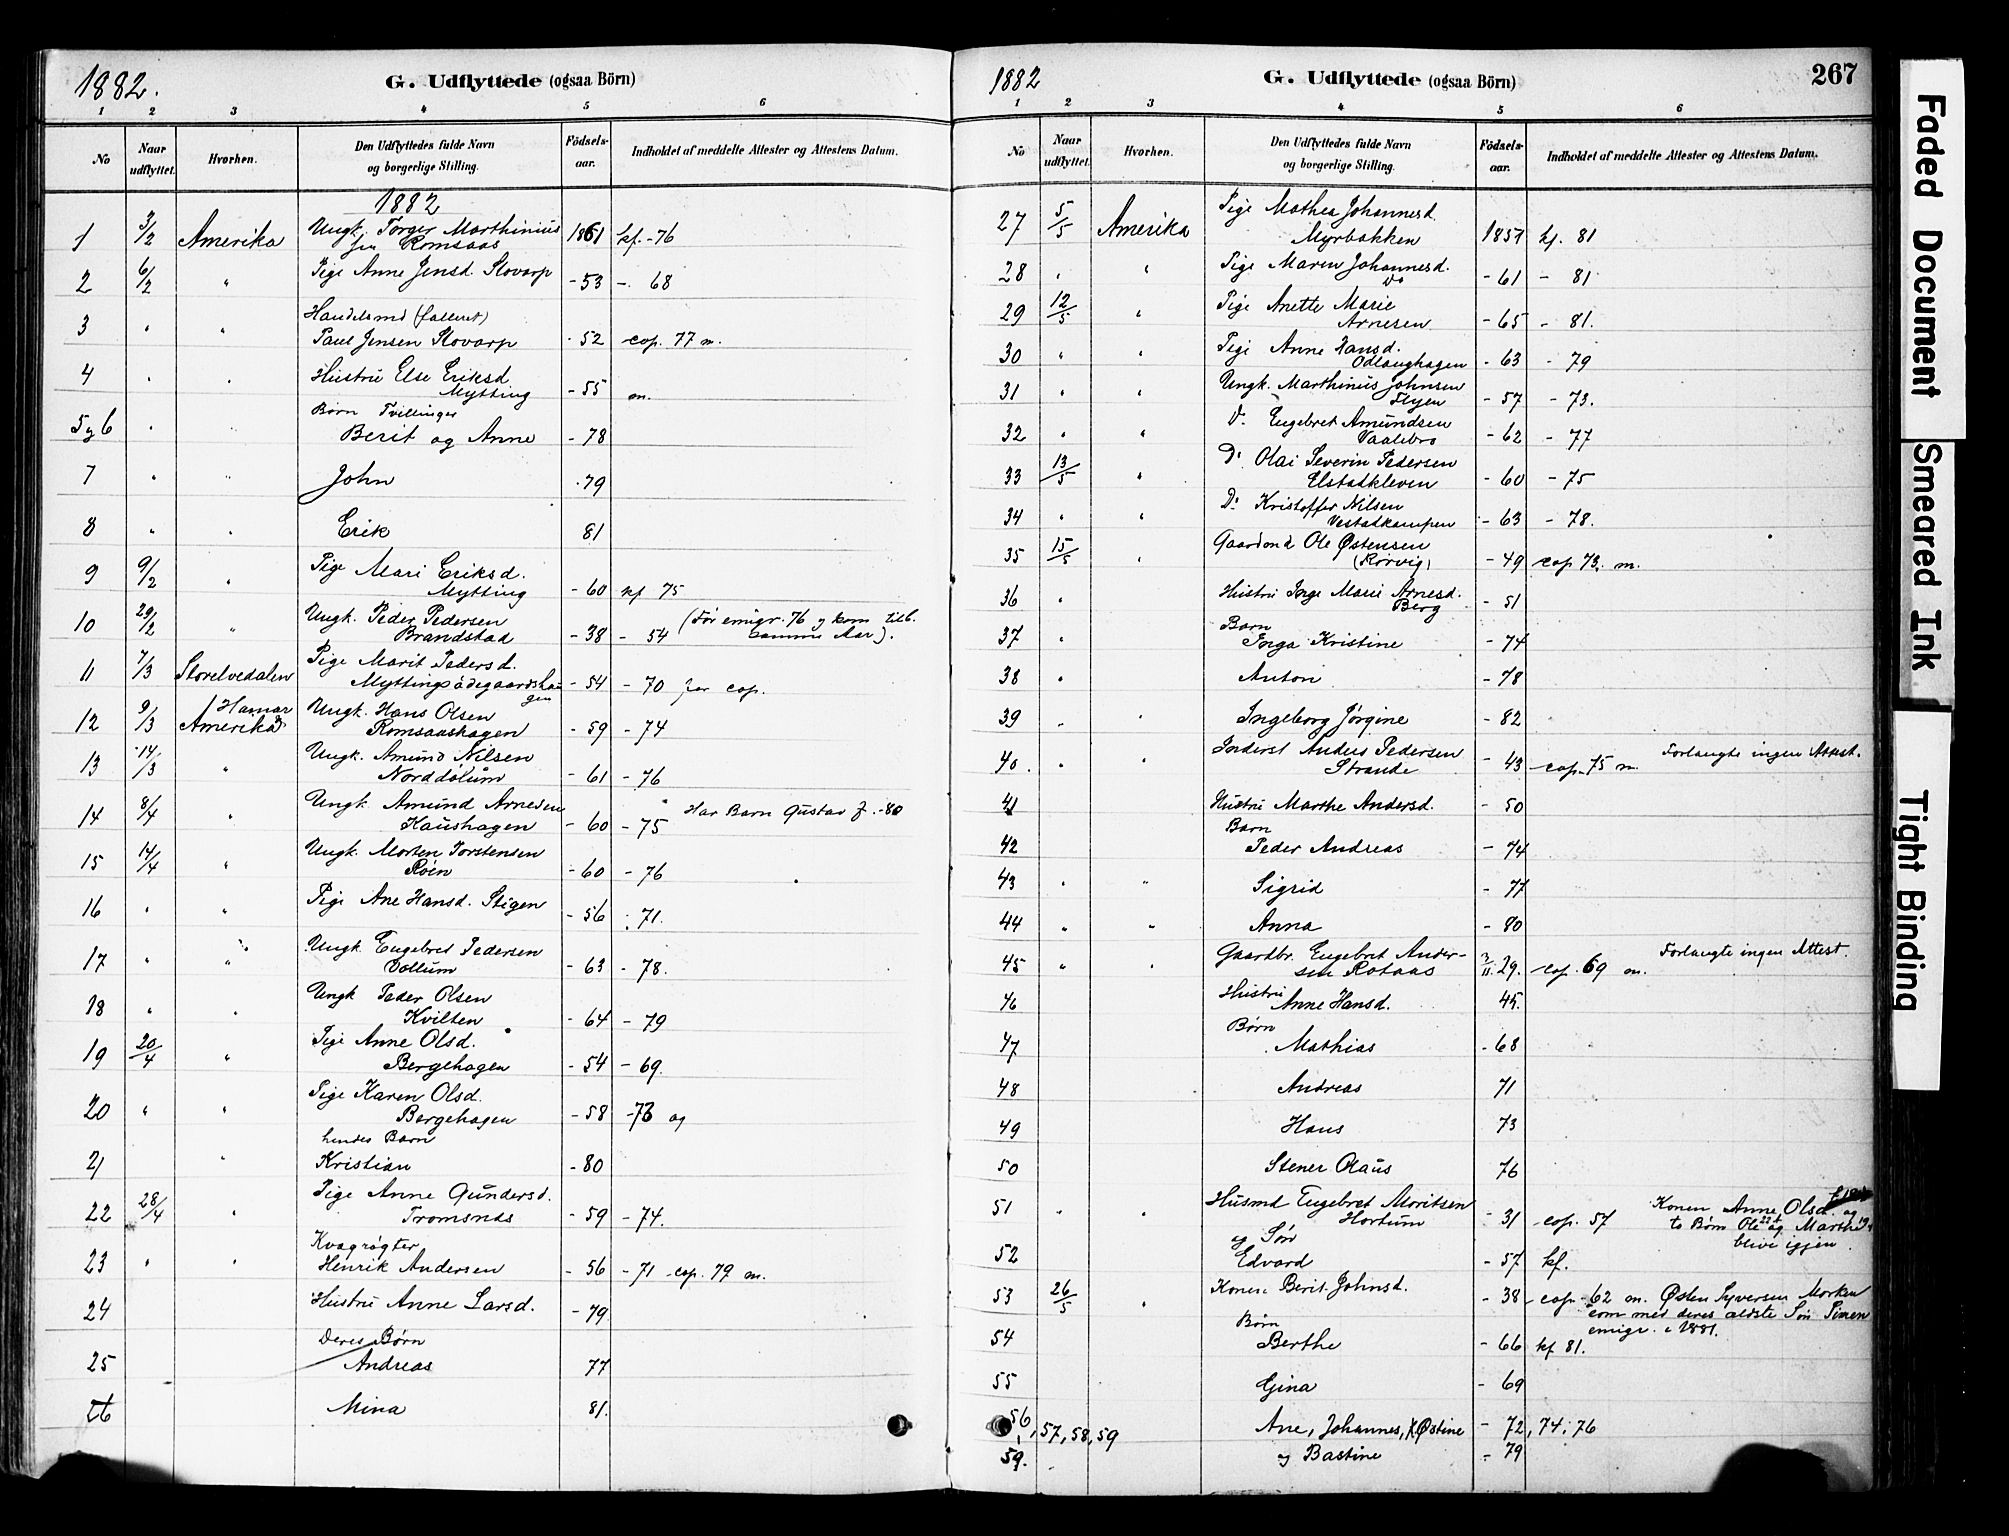 1882.
G. Udflyttede (ogsaa Börn)
1 2 3 4 5 6
No
Naar udflyttet.
Hvorhen.
Den Udflyttedes fulde Navn og borgerlige Stilling.
Födsels-aar.
Indholdet af meddelte Attester og Attestens Datum.
1882
1 3/2 Amerika Ungk. Torger Marthinius
Romsaas 1861 kf. -76
2 6/2 " Pige Anne Jensd. Slovarp - 53 -. 68
3 " " Handelsmd (falleret)
Paul Jensen Slovarp - 52 cop. 77 m.
4 " " Hustru Else Eriksd.
Mytting - 55 m.
5 og 6 " Børn Tvillinger
Berit og Anne - 78
7 " " John - 79
8 " " Erik 81
9 9/2 " Pige Mari Eriksd.
Mytting - 60 kf 75
10 29/2 " Ungk. Peder Pedersen
Brandstad - 38 - 54 (Før emigr. 76 og kom tilb.
samme Aar).
11 7/3 Storelvedalen Pige Marit Pedersd.
Myttingsødegaardshaugen - 54 - 70 for cop.
12 9/3 Hamar
Amerika Ungk. Hans Olsen
Romsaashagen - 59 - 74
13 14/3 " Ungk. Amund Nilsen
Norddølum - 61 - 76
14 8/4 " Ungk Amund Arnesen
Haushagen - 60 - 75 Har Barn Gustav f. -80
15 14/4 " Ungk. Morten Torstensen
Røen - 60 - 76
16 " " Pige Ane Hansd. Stigen - 56 - 71.
17 " " Ungk Engebret Pedersen
Vollum - 63 - 78.
18 " " Ungk Peder Olsen
Kvilten - 64 - 79
19 20/4 " Pige Anne Olsd.
Bergehagen - 54 - 69.
20 " " Pige Karen Olsd.
Bergehagen - 58 -73 og
hendes Barn
21 " Kristian - 80
22 28/4 " Pige Anne Gundersd.
Tromsnes - 59 - 74.
23 " " Kvægrøgter
Henrik Andersen - 56 - 71 cop. 79 m.
24 Hustru Anne Larsd. - 79
Deres Børn
25 Andreas 77
26 Mina 81.
1882
G. Udflyttede (ogsaa Börn)
267
1 2 3 4 5 6
No
Naar udflyttet.
Hvorhen.
Den Udflyttedes fulde Navn og borgerlige Stilling.
Födsels-aar.
Indholdet af meddelte Attester og Attestens Datum.
27 5/5 Amerika Pige Mathea Johannesd.
Myrbakken 1857 kf. 81
28 " " Pige Maren Johannesd.
Do - 61 - 81
29 12/5 " Pige Anette Marie
Arnesen - 65 - 81.
30 " " Pige Anne Hansd.
Odlaughagen - 63 - 79
31 " " Ungk. Marthinus Johnsen
Flyen - 57 - 73.
32 " " Do Engebret Amundsen
Vaalebro - 62 - 77
33 13/5 " Do Olai Severin Pedersen
Elstadkleven - 60 - 75
34 " " Do Kristoffer Nilsen
Vestadkampen - 63 - 78.
35 15/5 " Gaardmd Ole Østensen
(Rørvig) - 49 cop 73. m.
36 " Hustru Inge Marie Arnesd.
Berg - 51
37 " Barn
Inga Kristine - 74
38 " Anton - 78
39 " " Ingeborg Jørgine - 82
40. " " Inderst Anders Pedersen
Strande - 43 cop. 75 m Forlangte ingen Attest.
41 Hustru Marthe Andersd. - 50
42 Barn
Peder Andreas - 74
43 " " Sigrid - 77
44 " " Anna - 80
45 " " Gaardbr. Engebret Andersen
Rotaas 3/11 29. cop. 69 m. Forlangte ingen Attest.
46 Hustru
Anne Hansd. 45.
47 Børn
Mathias - 68
48 Andreas 71
49 Hans 73
50 Stener Olaus 76
51 " " Husmd Engebret Moritsen
Hortum - 31 cop. 57 Konen Anne Olsd. og
to Børn Ole og Marthe
blive igjen.
52 og Søn
Edvard - 57 kf.
53 26/5 " Kone Berit Johnsd. - 38 cop -62 m. Østen Syversen Morken
som med deres ældste Søn Simen
emigr. i 1881.
54 Børn
Berthe - 66 kf 81.
55 Gina - 69
56, 57, 58, 59 Ane, Johannes, Østine - 72, 74, 76
59. og Bastine - 79
Faded Document
Smeared Ink
Tight Binding